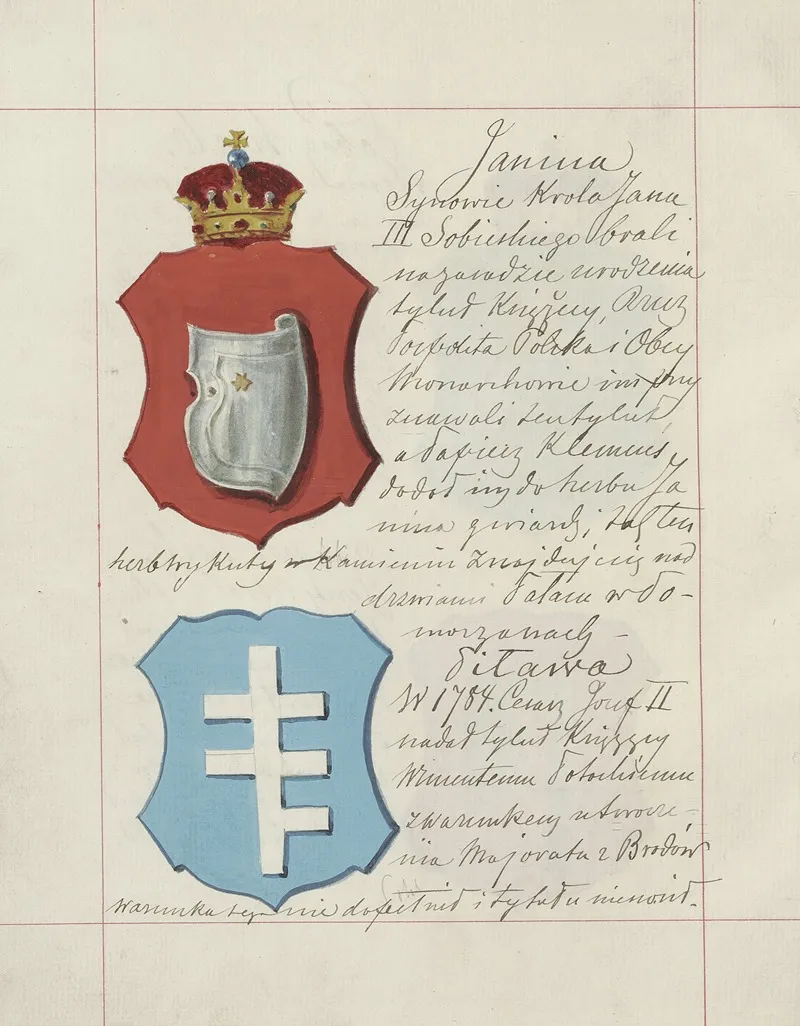 Janina
Synowie Krola Jana
III Sobieskiego brali
na zasadzie urodzenia
tytuł Książęcy, Rzecz
Pospolita Polska i Obcy
Monarchowie im przy
znawali ten tytuł,
a Papież Klemens
dodał im do herbu Ja
nina gwiazdę; zaś ten
herb wykuty w Kamieniu znajduje się nad
drzwiami Pałacu w Po-
morzanach -
Pilawa
W 1784. Cesarz Josef II
nadał tytuł Książęcy
Wincentemu Potockiemu
z warunkiem utworze-
nia Majoratu z Brodów
warunku tego nie dopełnił i tytułu nie